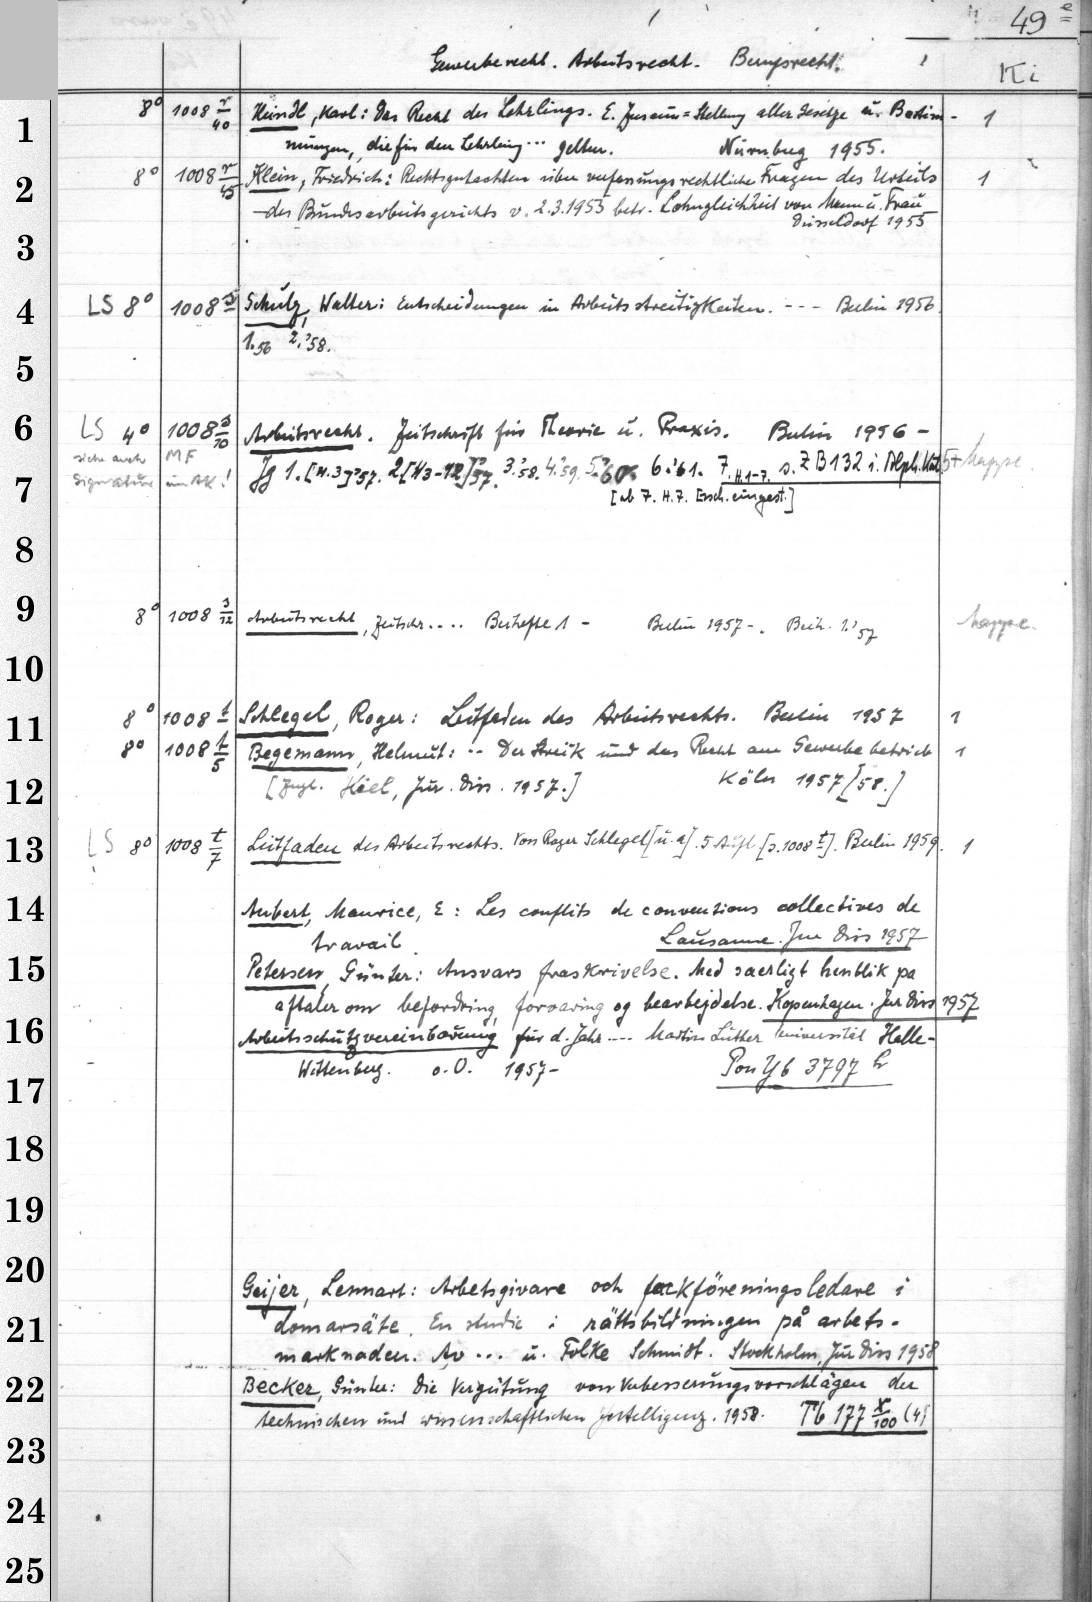 49 e
Gewerberecht. Arbeitsrecht. Berufsrecht.
Ki
1 8° 1008 r/40 Heindl, Karl: Das Recht des Lehrlings. E. Zusamm=stellung aller Gesetze u. Bestim- 1
mungen, die für den Lehrling ... gelten. Nürnberg 1955.
2 8° 1008 r/45 Klein, Friedrich: Rechtsgutachten über verfassungsrechtliche Fragen des Urteils 1
des Bundesarbeitsgerichts v. 2.3.1955 betr. Lohngleichheit von Mann u. Frau
Düsseldorf 1955
3
4 LS 8° 1008 s Schulz, Walter: Entscheidungen in Arbeitsstreitigkeiten. --- Berlin 1956.
1.56 2.'58.
5
6 LS 4° 1008 s/10 Arbeitsrecht. Zeitschrift für Theorie u. Praxis. Berlin 1956 -
siehe auch MF
Signature im AK!
7 Jg 1.[H.3]'57. 2[H3-12]'57. 3.'58. 4.'59. 5.'60. 6.'61. 7.H.1-7. s. ZB132 i. Alph. Kat. 5+ Mappe
[ab 7. H.7. Ersch. eingest.]
8
9 8° 1008 s/12 Arbeitsrecht, Zeitschr. ... Beihefte 1 - Berlin 1957 -. Beih. 1.'57 Mappe.
10
11 8° 1008 t Schlegel, Roger: Leitfaden des Arbeitsrechts. Berlin 1957 1
8° 1008 t/5 Begemann, Helmut: .. Der Streik und das Recht am Gewerbebetrieb 1
12 [Zugl. Kiel, Jur. Diss. 1957.] Köln 1957 [58.]
13 LS 8° 1008 t/7 Leitfaden des Arbeitsrechts. Von Roger Schlegel [u.a]. 5 Aufl. [s. 1008 t]. Berlin 1959. 1
14 Aubert, Maurice, E: Les conflits de conventions collectives de
travail Lausanne. Jur Diss 1957
15 Petersen, Günter: Ansvars fraskrivelse. Med saerligt henblik pa
aftaler om befordring, forvaring og bearbejdelse. Kopenhagen. Jur Diss 1957
16 Arbeitsschutzvereinbarung für d. Jahr .... Martin Luther Universität Halle-
Wittenberg. o.O. 1957-
17 Pon Yb 3797
18
19
20 Geijer, Lennart: Arbetsgivare och fackföreningsledare i
21 domarsäte. En studie i rättsbildningen på arbets-
marknaden. Av ... u. Folke Schmidt. Stockholm, Jur Diss 1958
22 Becker, Günter: Die Vergütung von Verbesserungsvorschlägen der
technischen und wissenschaftlichen Intelligenz. 1958. Tb 177 x/100 (4)
23
24
25